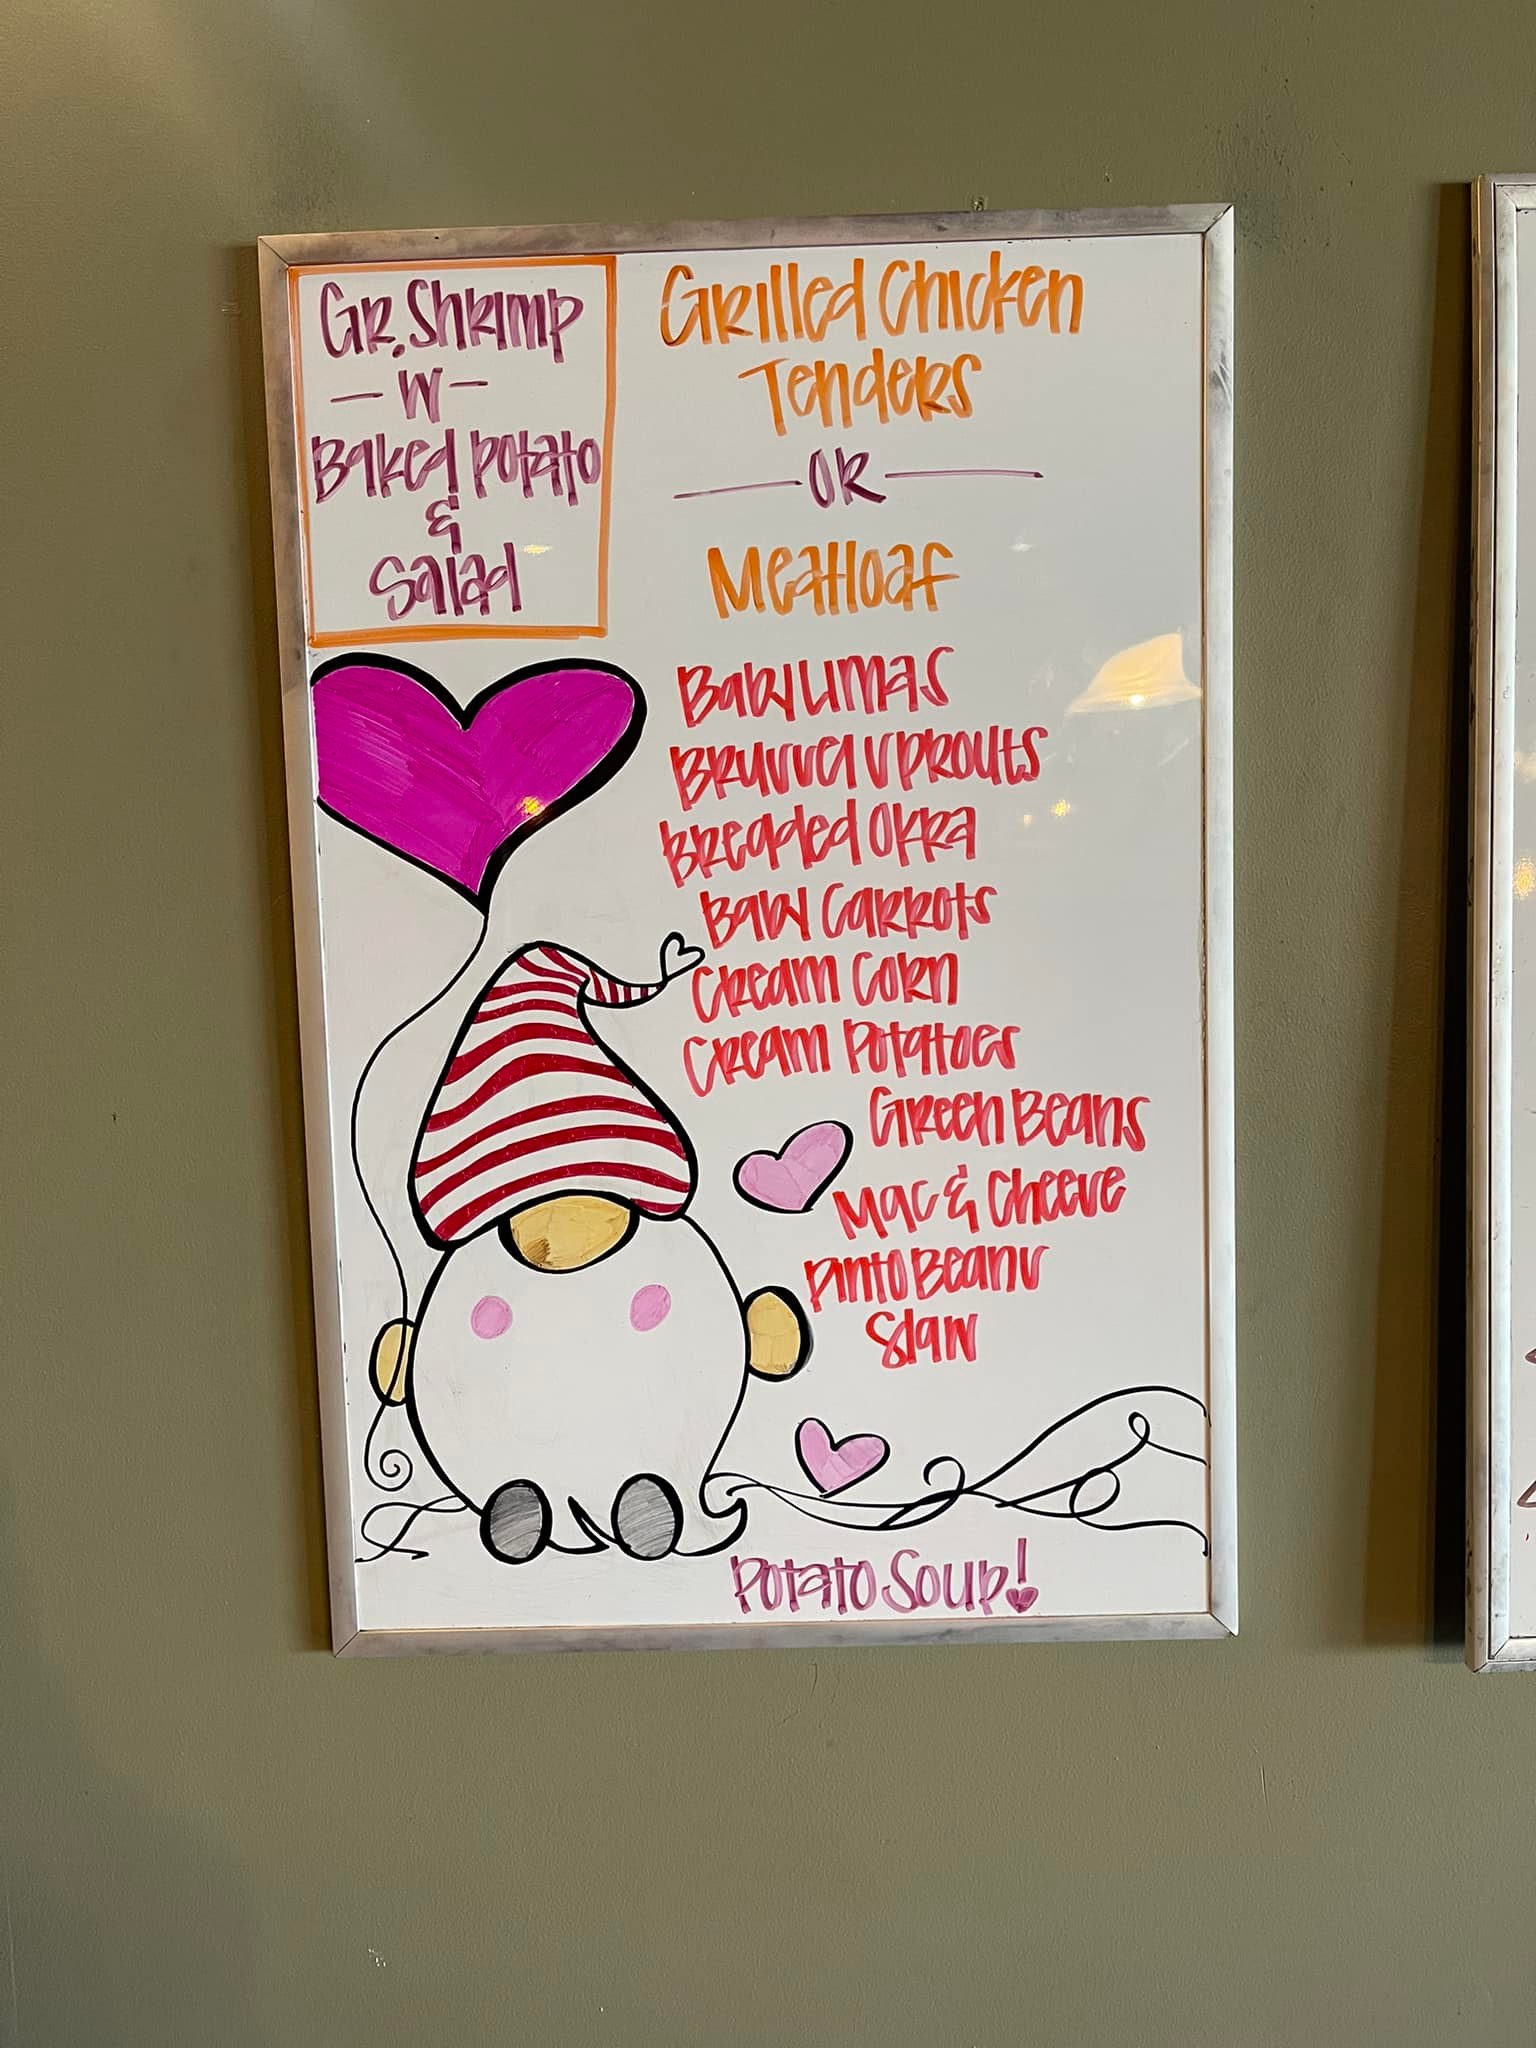 Gr. Shrimp
- W -
Baked Potato
&
Salad
Grilled Chicken
Tenders
OR
Meatloaf
Baby Limas
Brussel Sprouts
Breaded Okra
Baby Carrots
Cream Corn
Cream Potatoes
Green Beans
Mac & Cheese
Pinto Beans
Slaw
Potato Soup!